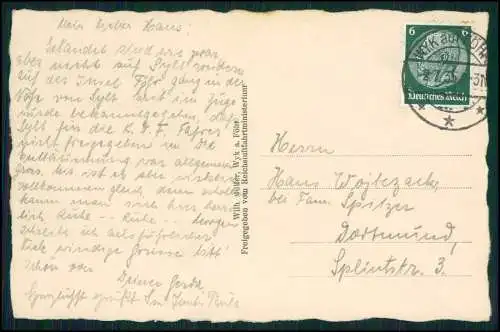 Mein lieber Hans!
Gelandet sind wir zwar
aber nicht auf Sylt sondern
auf der Insel Föhr, ganz in der
Nähe von Sylt. Erst im Zuge
wurde bekanntgegeben, daß
Sylt für die K.d.F. Fahrer
nicht freigegeben ist. Die
Enttäuschung war allgemein
groß. Mir ist es aber
vollkommen gleich, denn erholen
kann man sich hier
Ruhe -- Ruhe -- Morgen
schreibe ich ausführlicher.
windige Grüße
schon von
Deiner Gerda
Wilh. Stöver, Wyk a. Föhr
Freigegeben vom Reichsluftfahrtministerium
6 6
Deutsches Reich
WYK auf FÖHR
Herrn
Hans Wojtczack,
bei Fam. Spitzer
Dortmund,
Splintstr. 3.